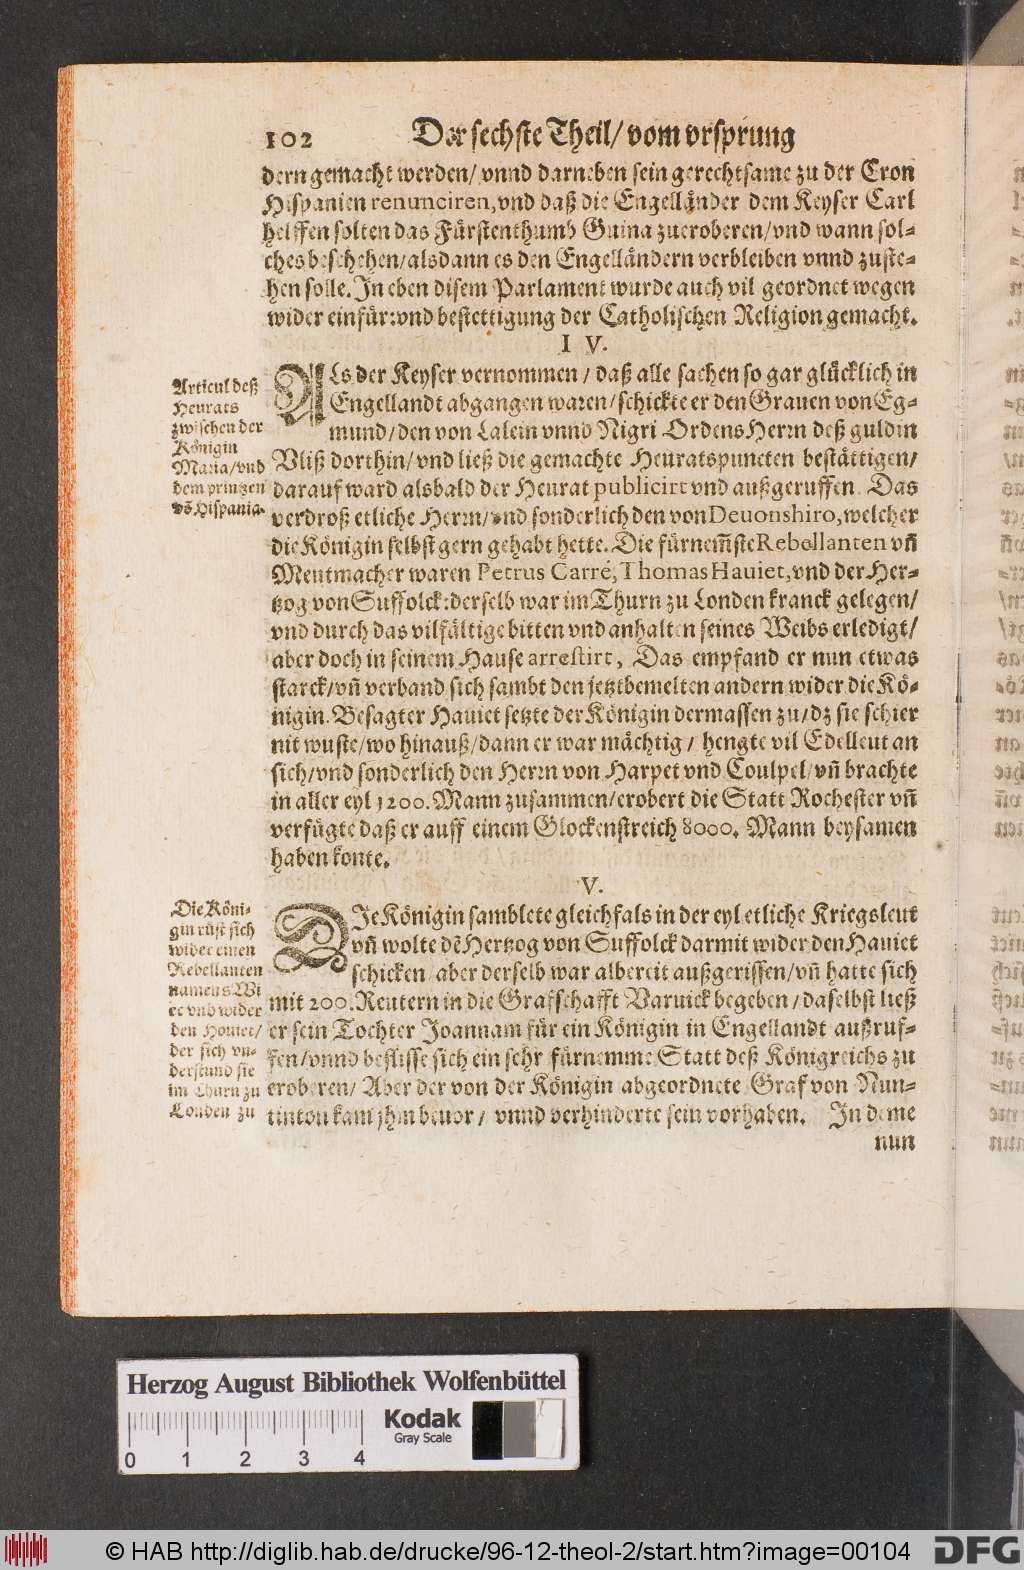 102 Der sechste Theil/ vom vrsprung
dern gemacht werden/ vnnd darneben sein gerechtsame zu der Cron
Hispanien renunciren, vnd daß die Engelländer dem Keyser Carl
helffen solten das Fürstenthumb Guina zueroberen/ vnd wann sol-
ches beschehen/ alsdann es den Engelländern verbleiben vnnd zuste-
hen solle. In eben disem Parlament wurde auch vil geordnet wegen
wider einfür: vnd bestettigung der Catholischen Religion gemacht.
IV.
Articul deß
Heurats
zwischen der
Königin
Maria/ vnd
dem printzen
võ Hispania.
ALs der Keyser vernommen/ daß alle sachen so gar glücklich in
Engellandt abgangen waren/ schickte er den Grauen von Eg-
mund/ den von Lalein vnnd Nigri Ordens Herrn deß guldin
Vliß dorthin/ vnd ließ die gemachte Heuratspuncten bestättigen/
darauf ward alsbald der Heurat publicirt vnd außgeruffen. Das
verdroß etliche Herrn/ vnd sonderlich den von Deuonshiro, welcher
die Königin selbst gern gehabt hette. Die fürnem̃ste Rebellanten vñ
Meutmacher waren Petrus Carré, Thomas Hauiet, vnd der Her-
tzog von Suffolck: derselb war im Thurn zu Londen kranck gelegen/
vnd durch das vilfältige bitten vnd anhalten seines Weibs erledigt/
aber doch in seinem Hause arrestirt, Das empfand er nun etwas
starck/ vñ verband sich sambt den jetztbemelten andern wider die Kö-
nigin. Besagter Hauiet setzte der Königin dermassen zu/ dz sie schier
nit wuste/ wo hinauß/ dann er war mächtig/ hengte vil Edelleut an
sich/ vnd sonderlich den Herrn von Harpet vnd Coulpel/ vñ brachte
in aller eyl 1200. Mann zusammen/ erobert die Statt Rochester vñ
verfügte daß er auff einem Glockenstreich 8000. Mann beysamen
haben konte.
V.
Die Köni-
gin rüst sich
wider einen
Rebellanten
namens Wi
et vnd wider
den Houiet/
der sich vn-
derstund sie
im Thurn zu
Londen zu
DIe Königin samblete gleichfals in der eyl etliche Kriegsleut
vñ wolte dē Hertzog von Suffolck darmit wider den Hauiet
schicken aber derselb war albereit außgerissen/ vñ hatte sich
mit 200. Reutern in die Grafschafft Varuick begeben/ daselbst ließ
er sein Tochter Joannam für ein Königin in Engellandt außruf-
fen/ vnnd beflisse sich ein sehr fürnemme Statt deß Königreichs zu
eroberen/ Aber der von der Königin abgeordnete Graf von Nun-
tinton kam jhm beuor/ vnnd verhinderte sein vorhaben. In deme
nun
Herzog August Bibliothek Wolfenbüttel
Kodak
Gray Scale
0 1 2 3 4
© HAB http://diglib.hab.de/drucke/96-12-theol-2/start.htm?image=00104
DFG